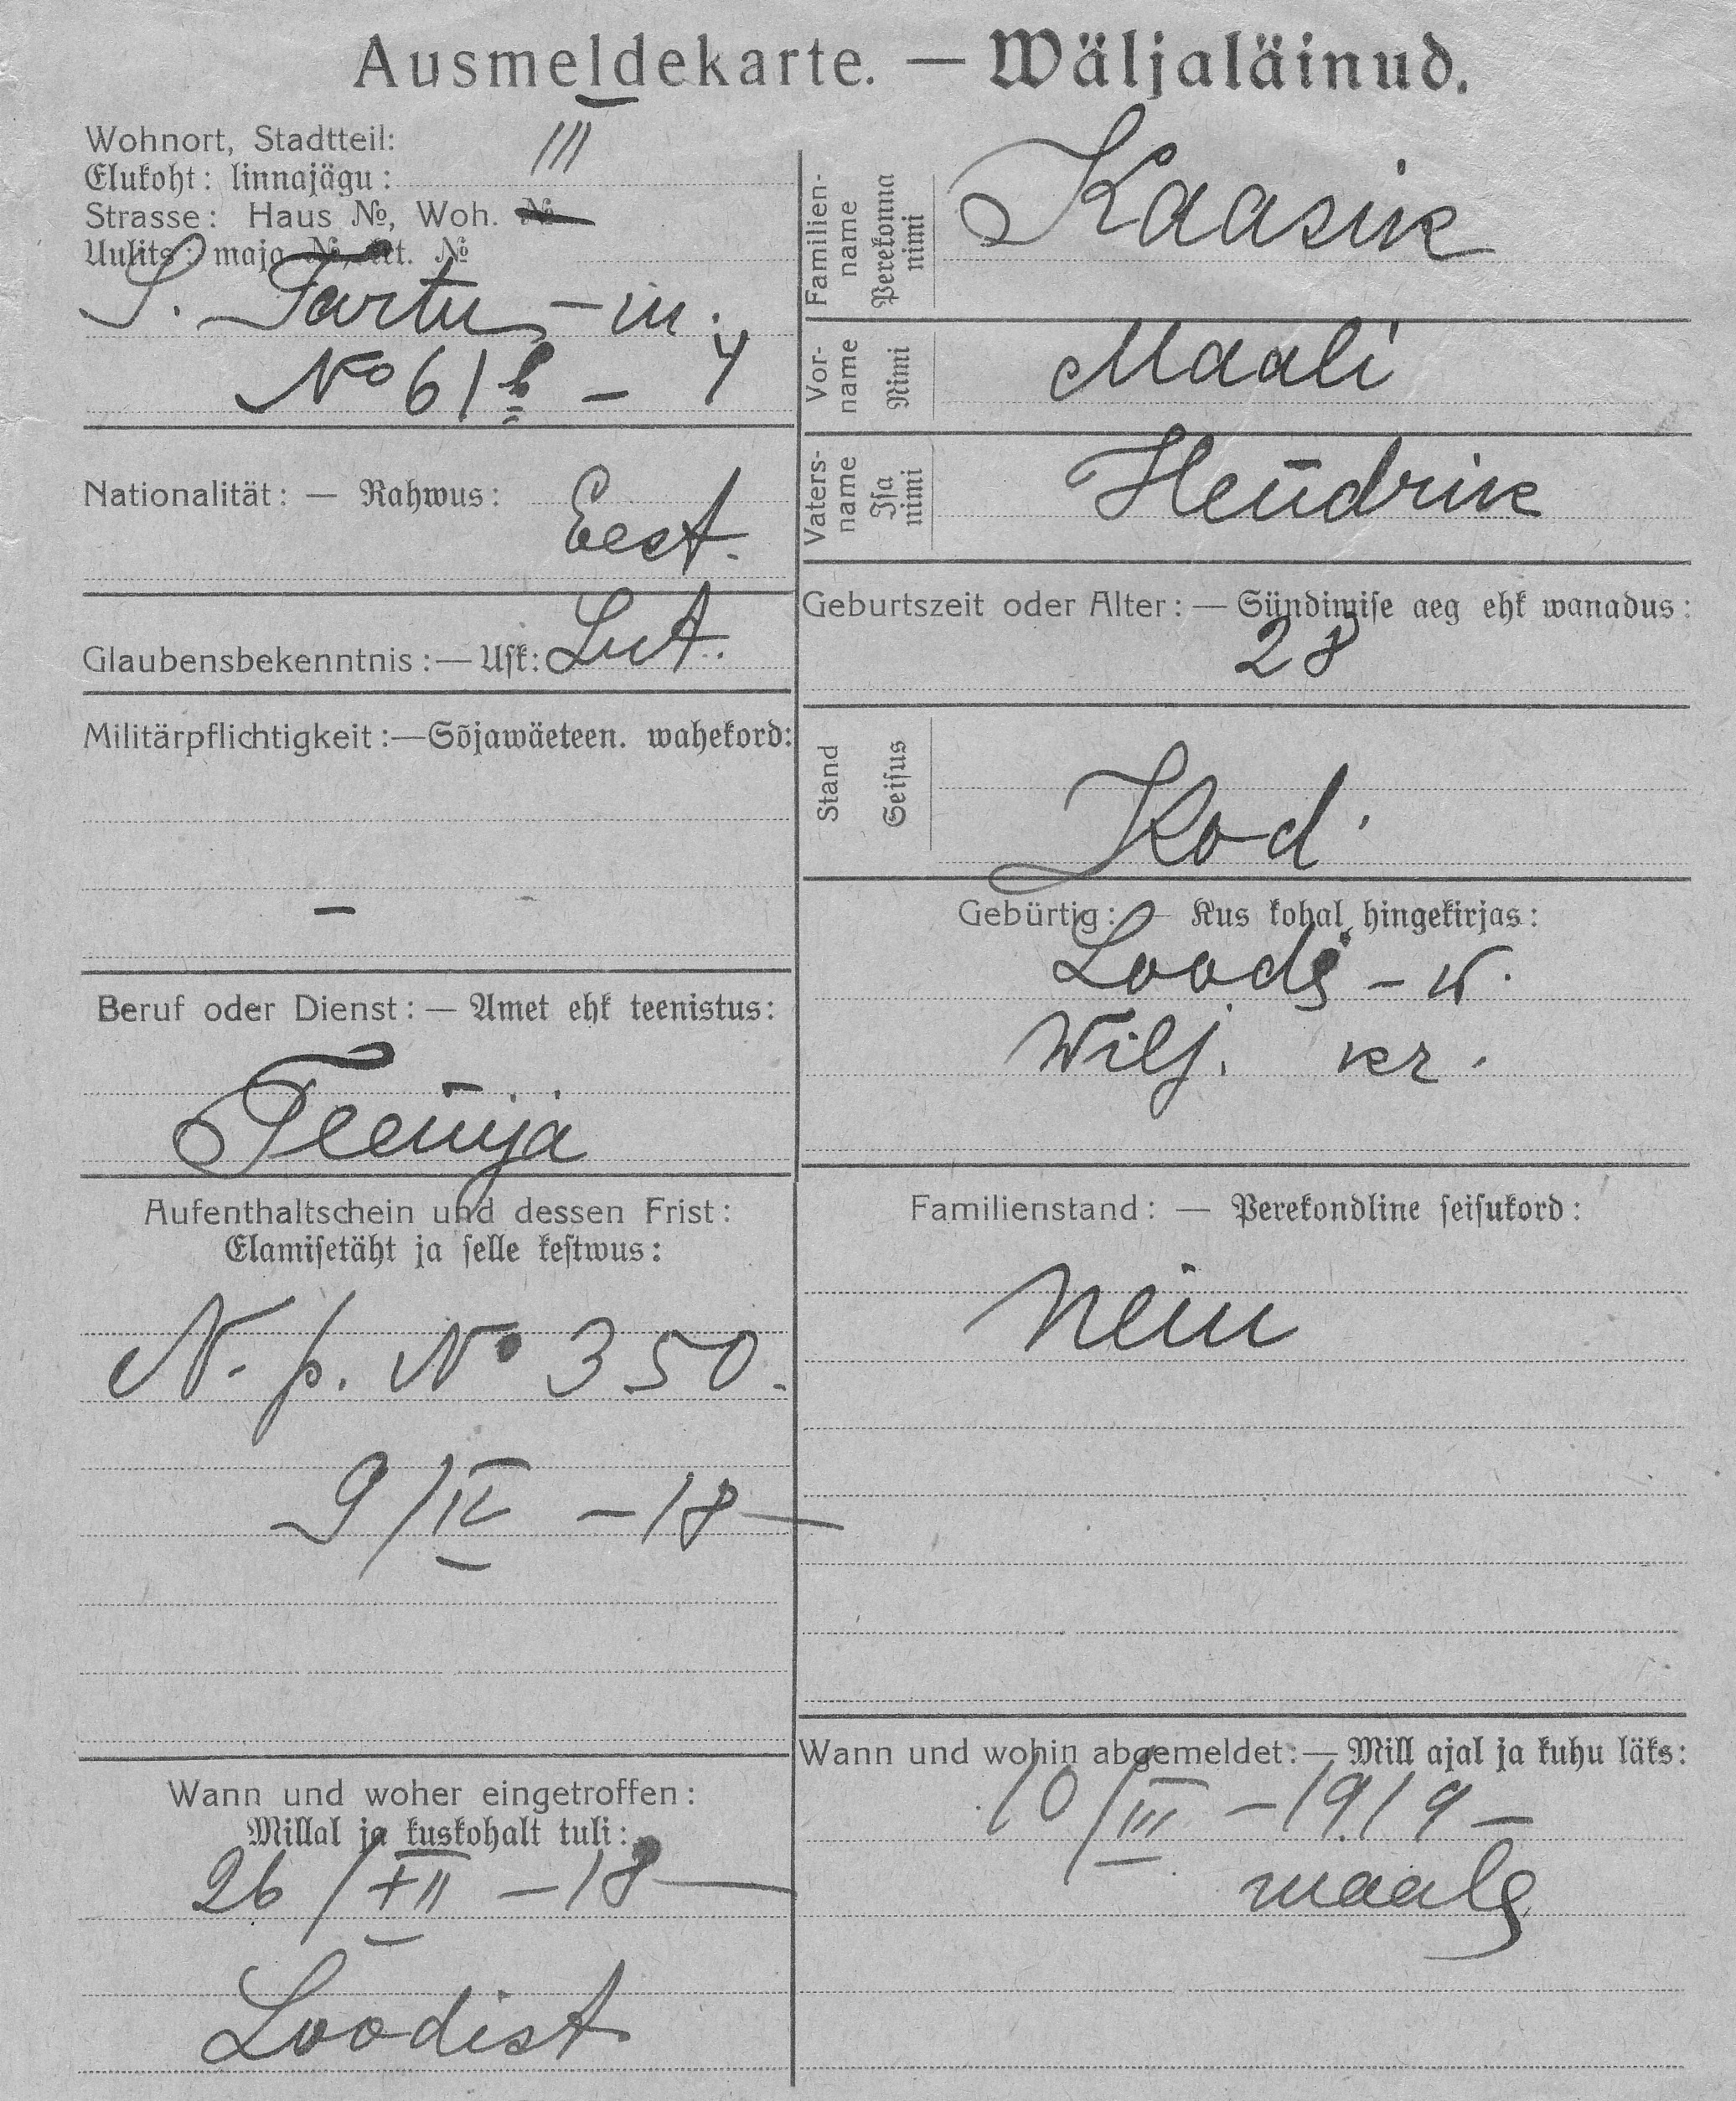 Ausmeldekarte. — Wäljaläinud.
Wohnort, Stadtteil:
Elukoht: linnajägu: III
Strasse: Haus №, Woh. №
Uulits: maja №, krt. №
S. Tartu - m.
№ 61 b - 4
Nationalität: — Rahwus: Eest.
Glaubensbekenntnis: — Usk: Lut.
Militärpflichtigkeit: — Sõjawäeteen. wahekord:
—
Beruf oder Dienst: — Amet ehk teenistus:
Teenija
Aufenthaltschein und dessen Frist:
Elamisetäht ja selle kestwus:
N. p. № 350.
9/IV - 18
Wann und woher eingetroffen:
Millal ja kuskohalt tuli:
26/XII - 18
Loodist
Familien-
name
Perekonna
nimi
Kaasik
Vor-
name
Nimi
Maali
Vaters-
name
Isa
nimi
Hendrik
Geburtszeit oder Alter: — Sündimise aeg ehk wanadus:
28
Stand
Seisus
Kod.
Gebürtig: — Kus kohal hingekirjas:
Loodi - w.
Wilj. kr.
Familienstand: — Perekondline seisukord:
Nein
Wann und wohin abgemeldet: — Mill ajal ja kuhu läks:
10/III - 1919 -
maale